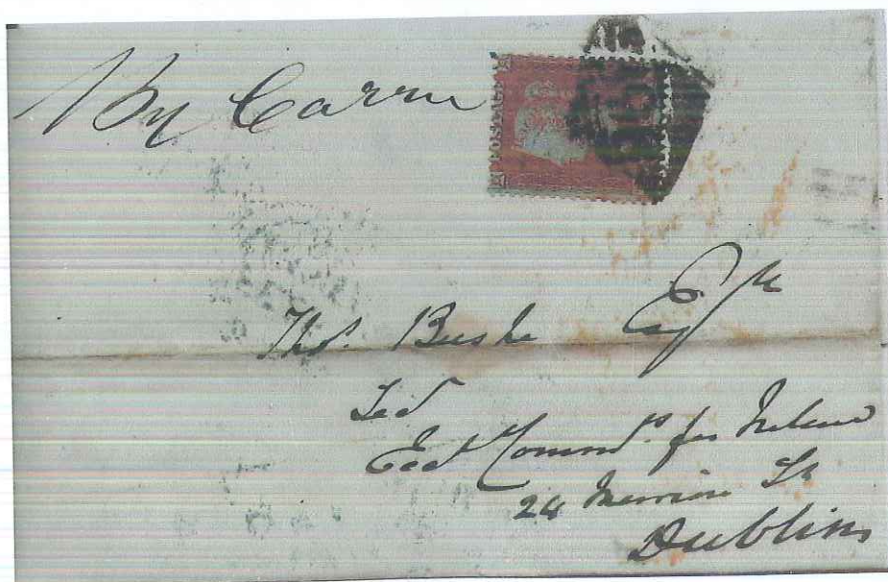 By Carru
POSTAGE
Thos. Bushe Esqre
Sec
Eccl Commrs. for Ireland
24 Merrion St
Dublin